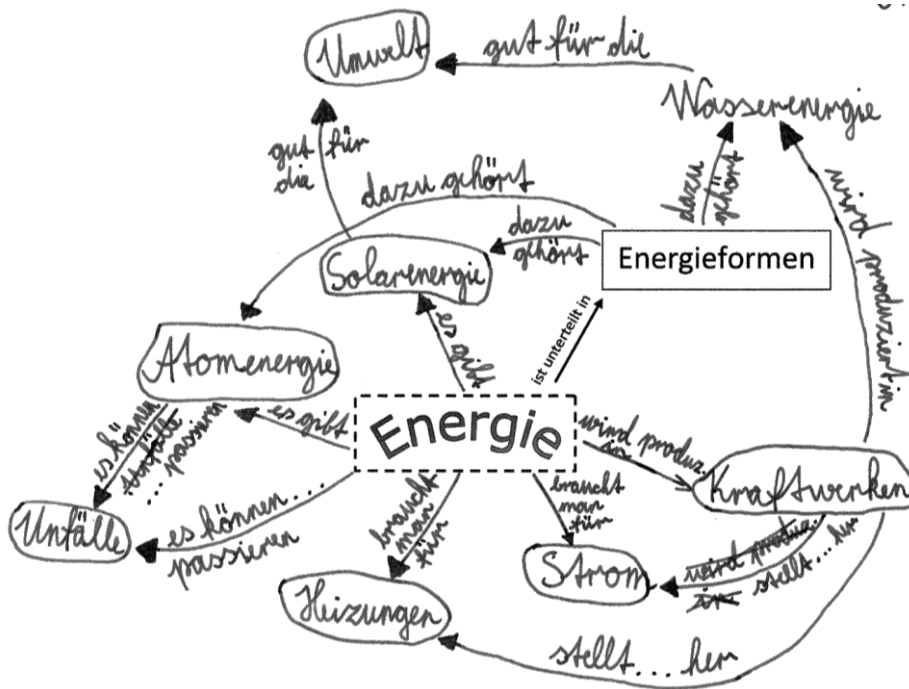 Umwelt
gut für die
Wasserenergie
gut für
die
dazu gehört
dazu
gehört
dazu
gehört
wird produziert in
Solarenergie
Energieformen
ist unterteilt in
es gibt
Atomenergie
es gibt
Energie
wird produz.
in
Kraftwerken
es können
Unfälle
... passieren
Unfälle
es können...
passieren
braucht
man
für
braucht
man
für
Strom
wird produz.
in
stellt... her
Heizungen
stellt.... her